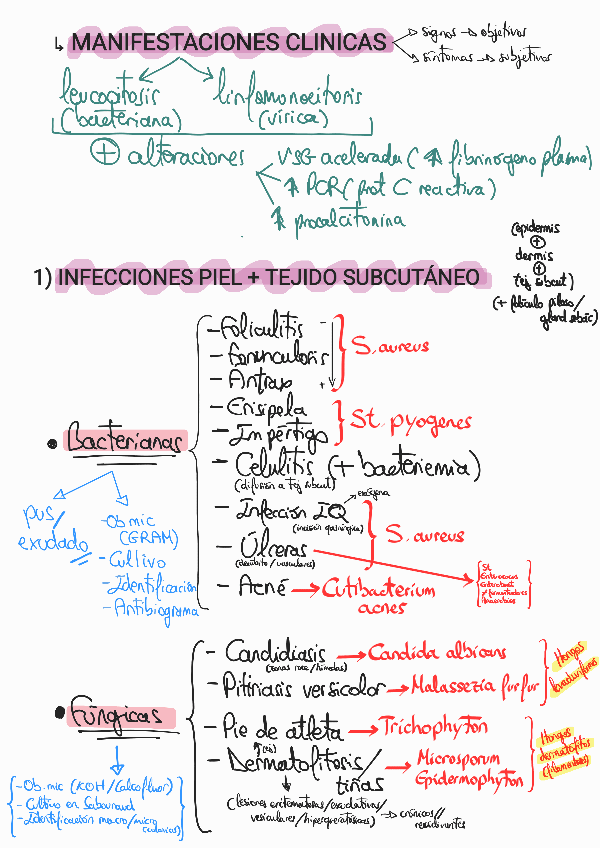 ↳ MANIFESTACIONES CLINICAS
→ signos → objetivos
→ síntomas → subjetivos
leucocitosis
(bacteriana)
linfomonocitosis
(vírica)
⊕ alteraciones
VSG acelerada (↑ fibrinógeno plasma)
↑ PCR (prot C reactiva)
↑ procalcitonina
(epidermis
⊕
dermis
⊕
tej subcut)
(+ folículo piloso/
gland sebác)
1) INFECCIONES PIEL + TEJIDO SUBCUTÁNEO
• Bacterianas
- Foliculitis
- forunculosis
- Antrax
S. aureus
- Erisipela
- Impértigo
St. pyogenes
- Celulitis (+ bacteriemia)
(difusión a tej subcut)
- Infección IQ → exógena
(incisión quirúrgica)
- Úlceras
(decúbito/vasculares)
S. aureus
St
Enterococos
Enterobact
Anaerobios
- Acné → Cutibacterium
acnes
pus/
exudado
- Ob mic
(GRAM)
- Cultivo
- Identificación
- Antibiograma
• Fúngicas
- Candidiasis → Candida albicans
(zonas roce/húmedas)
- Pitiriasis versicolor → Malassezia furfur
Hongos
levaduriformes
- Pie de atleta → Trichophyton
- Dermatofitosis/
tiñas
→ Microsporum
Epidermophyton
Hongos
dermatofitos
(filamentosos)
(lesiones eritematosas/exudativas/
vesiculares/hiperqueratósicas) → crónicas//
recidivantes
- Ob.mic (KOH/Calcofluor)
- Cultivo en Sabouraud
- Identificación macro/micro